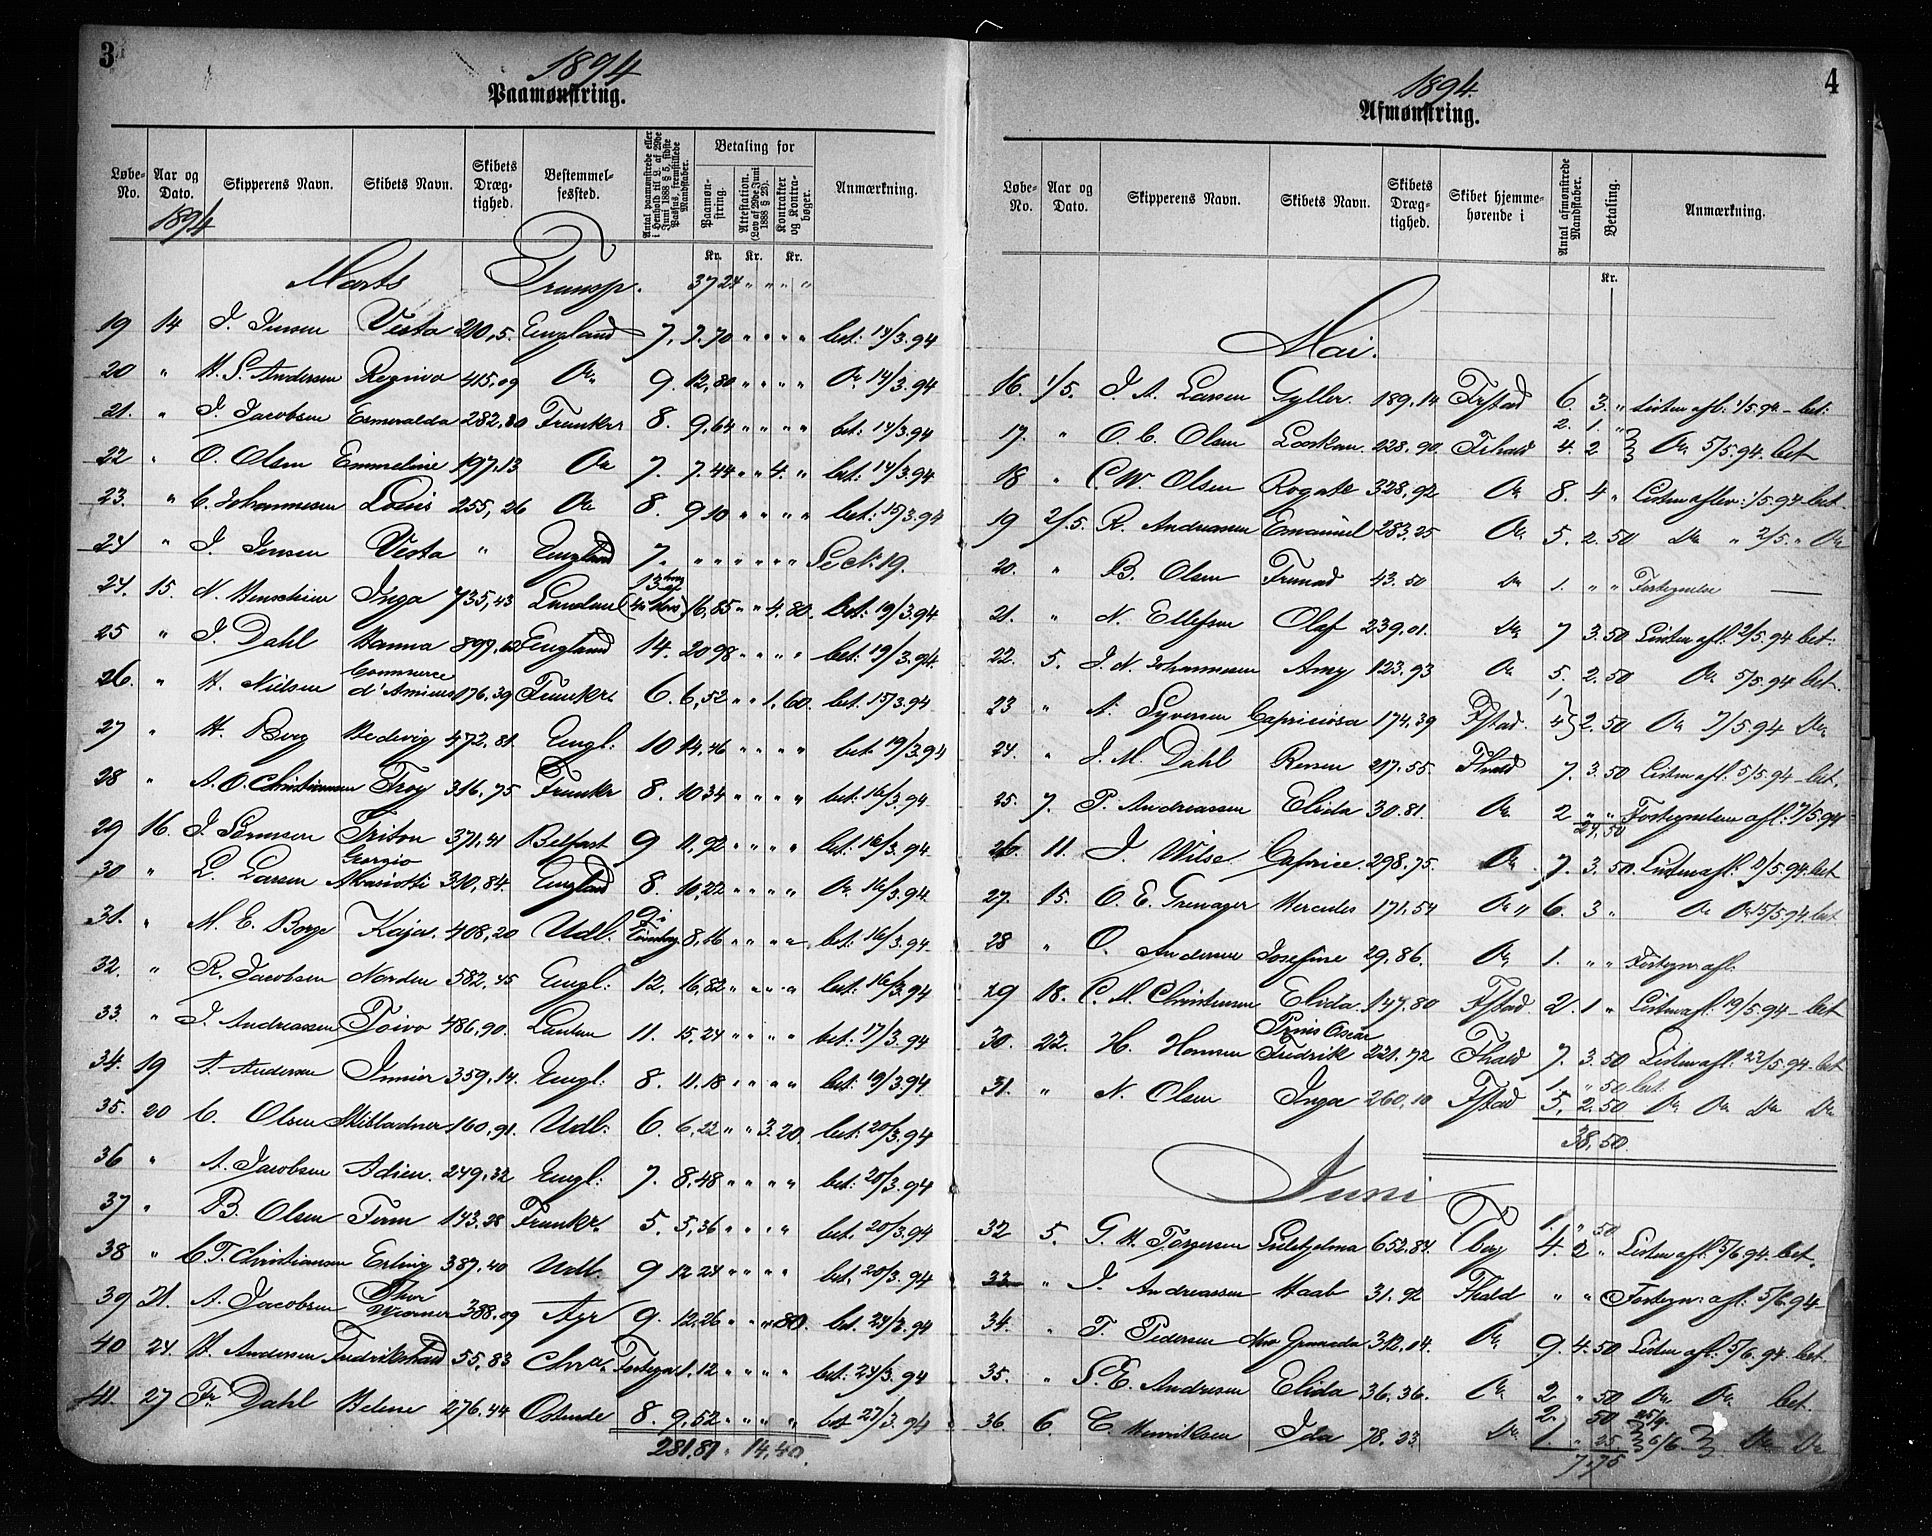 3
1894
Paamønstring.
Løbe-No. Aar og Dato. Skipperens Navn. Skibets Navn. Skibets Dræg-tighed. Bestemmel-sessted. Antal paamønstrede eller i Henhold til L. af 29de Juni 1888 § 5, sidste Passus, fremstillede Mandskaber. Betaling for Paamøn-string. Attestation. (Lov af 29de Juni 1888 § 25). Kontrakter og Kontra-bøger. Anmærkning.
1894
Kr. Kr. Kr.
Marts Transp. 37 24 " " " "
19 14 J. Jensen Vesta 210,5. England 7. 7.70 " " " " bet: 14/3.94
20 " H. S. Andersen Regina 415,09 Do 9. 12,80 " " " " Do 14/3.94
21. " J. Jacobsen Esmeralda 282,80 Frankr 8. 9,64 " " " " bet: 14/3.94
22 " O. Olsen Emmeline 197,13 Do 7. 7.44 " " 4. " bet: 14/3.94
23. " C. Johannesen Louis 255,26 Do 8. 9 10 " " " " bet: 15/3.94
24 " J. Jensen Vesta " England 7. " " " " " " Se No 19.
24. 15. N. Inga 735,43 London 13 16,85 " " 4.80. bet. 19/3.94
25 " J. Dahl Hanna 899,62 England 14. 20 98 " " " " bet: 19/3.94.
26. " H. Nielsen Commerce d'Amiens 176,39 Frankr. 6. 6,52 " " 1,60. bet. 15/3.94
27 " H. Berg Hedevig 472,81 Engl: 10 14.46 " " " " bet 19/3.94
28 " A. O. Christiansen Troy 316,75 Frankr 8. 10 34 " " " " bet: 16/3.94
29 16. J. Sørensen Triton 371,41 Belfast 9 11,92 " " " " bet: 16/3.94
30 " L. Larsen Georgio 310,84. England 8. 10,22 " " " " Do 16/3.94
31. " M. E. Borge Kaja. 408,20 Udl: 8,16 " " " " bet: 16/3.94
32. " R. Jacobsen Norden 582,45 Engl: 12. 16,82 " " " " bet: 16/3.94
33. " J. Andreassen Toivo 486,90. London 11. 15,24 " " " " bet: 17/3.94
34. 19 A. Andersen 359,14. Engl: 8. 11.18 " " " " bet: 19/3.94
35. 20 C. Olsen Skibladner 160,91. Udl: 6. 6,22 " " 3.20. bet: 20/3.94
36 " A. Jacobsen Adien. 249,32 Engl: 7. 8,48 " " " " bet: 20/3.94
37 " B. Olsen Ferm 143.28 Frankr. 5 5,36 " " " " bet. 20/3.94
38 " C. T. Christiansen Erling 387,40 Udl: 9 12 24 " " " " bet. 20/3.94
39 21. A. Jacobsen Thor 388,09 Ayr 9. 12,26 " " " 80. bet. 23/3.94
40 24. H. Andersen Fredrikstad 55,83 Chra. Fortegn 1.12 " " " " bet. 23/3.94
41. 27 Fr. Dahl Helene 276,44 Ostende 8. 9,52 " " " " bet 27/3.94
281,87 " 14,40.
4
1894.
Afmønstring.
Løbe-No. Aar og Dato. Skipperens Navn. Skibets Navn. Skibets Dræg-tighed. Skibet hjemme-hørende i Antal afmønstrede Mandskaber. Betaling. Anmærkning.
Kr.
Mai.
16. 1/5. J. A. Larsen Gyller. 189,14 Frstad 6. 3. " Listen afl: 1/5.94 - bet:
2. 1. "
17. " O. C. Olsen 228.90. Frhald 4. 2 } Do 5/5.94. bet
18 " C. W. Olsen Rogate 328,92 Do 8. 4 " Listen aflev: 1/5.94 - bet
19 2/5. R. Andreassen Emanuel 283.25 Do 5. 2.50 Do " 2/5. " Do
20. " B. Olsen Trunad 43.50 Do 1. " " Fortegnelse
21. " N. Ellefsen Olaf 239.01. Do 7 3.50 Listen afl. 2/5.94 bet:
22. 5. J. N. Johannesen Amy 123.93 Do 5. 2.50 Do 5/5.94 bet.
23 " A. Syversen Capriciosa 174.39 Fstad. 1 4} 2.50 Do 7/5.94 Do
24. " J. M. Dahl Rersen 217.55. Fhald 7. 3.50 Listen afl. 5/5.94 - bet.
25. 7. P. Andreassen Elida 30.81. Do 2 " " Fortegnelsen afl: 7/5.94
24.50
26. 11. J. Wilse. Caprice. 298,75. Do 7. 3.50 Listen afl. 11/5.94. bet
27. 15. O. E. Grevager Hercules 171.54 Do " 6. 3 " Do Do 15/5.94. bet
28 " O. Andersen Josefine 29.86. Do 1. " " Fortegn: afl:
29 18. C. M. Christensen Elida 147.80 Fstad 2. 1 " Listen afl. 19/5.94 - bet
30. 22. H. Hansen Prins Oscar Fredrik 221,72 Fhald 7. 3.50 Listen afl. 22/5.94 - bet
1. " 50 bet.
31. " N. Olsen Inga 260,10 Fstad 5. 2.50 Do Do Do Do
38,50.
Juni
1. " 50
32 5. G. H. Torgersen 652.84. Tbrg 4. 2 " Listen afl. 5/6.94 - bet.
33 " J. Andreassen Haab 31.92 Fhald " " Fortegn: afl: 5/6.94
34. " T. Pedersen New Granada 312,04. Do 9. 4.50 Listen afl. 5/6.94. bet.
35. " S. E. Andresen Elida 36.36. Do 2 " 50 Do Do bet.
2. 50 25/4.
36. 6. C. Henriksen Ida 78.23 Do 1. " 25. } 6/6. } Do Do
7,75